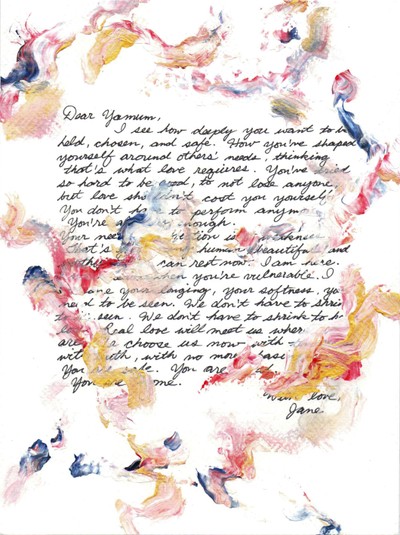 Dear Yamum,
I see how deeply you want to be
held, chosen, and safe. How you've shaped
yourself around others' needs, thinking
that's what love requires. You've tried
so hard to be good, to not lose anyone,
but love shouldn't cost you yourself.
You don't to perform anymore
You're enough.
Your is
that's human, beautiful, and
can rest now. I am here.
when you're vulnerable. I
your longing, your softness, your
need to be seen. We don't have to shrink
seen. We don't have to shrink to
Real love will meet us where
are choose us now with
with, with no more
You You are
You me.
With love,
Jane